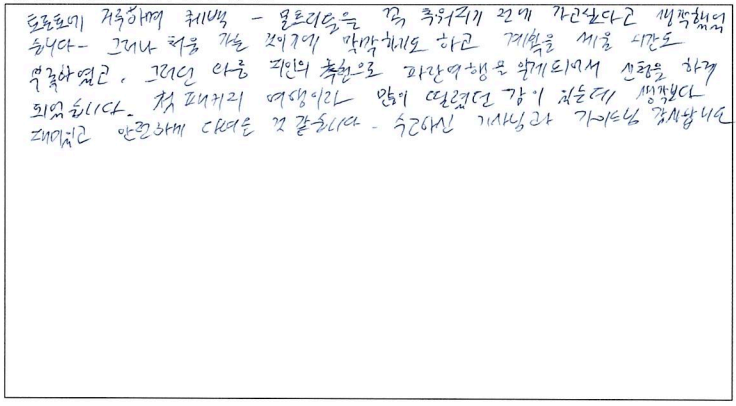 토론토에 거주하며 퀘벡 - 몬트리올을 꼭 추워지기 전에 가고싶다고 생각했었
습니다- 그러나 처음 가는 것이기에 막막하기도 하고 계획을 세울 시간도
부족하였고, 그러던 와중 지인의 추천으로 파란여행을 알게되어서 신청을 하게
되었습니다. 첫 패키지 여행이라 많이 떨렸던 감이 있는데 생각보다
재미있고 안전하게 다녀온 것 같습니다. 수고하신 기사님과 가이드님 감사합니다